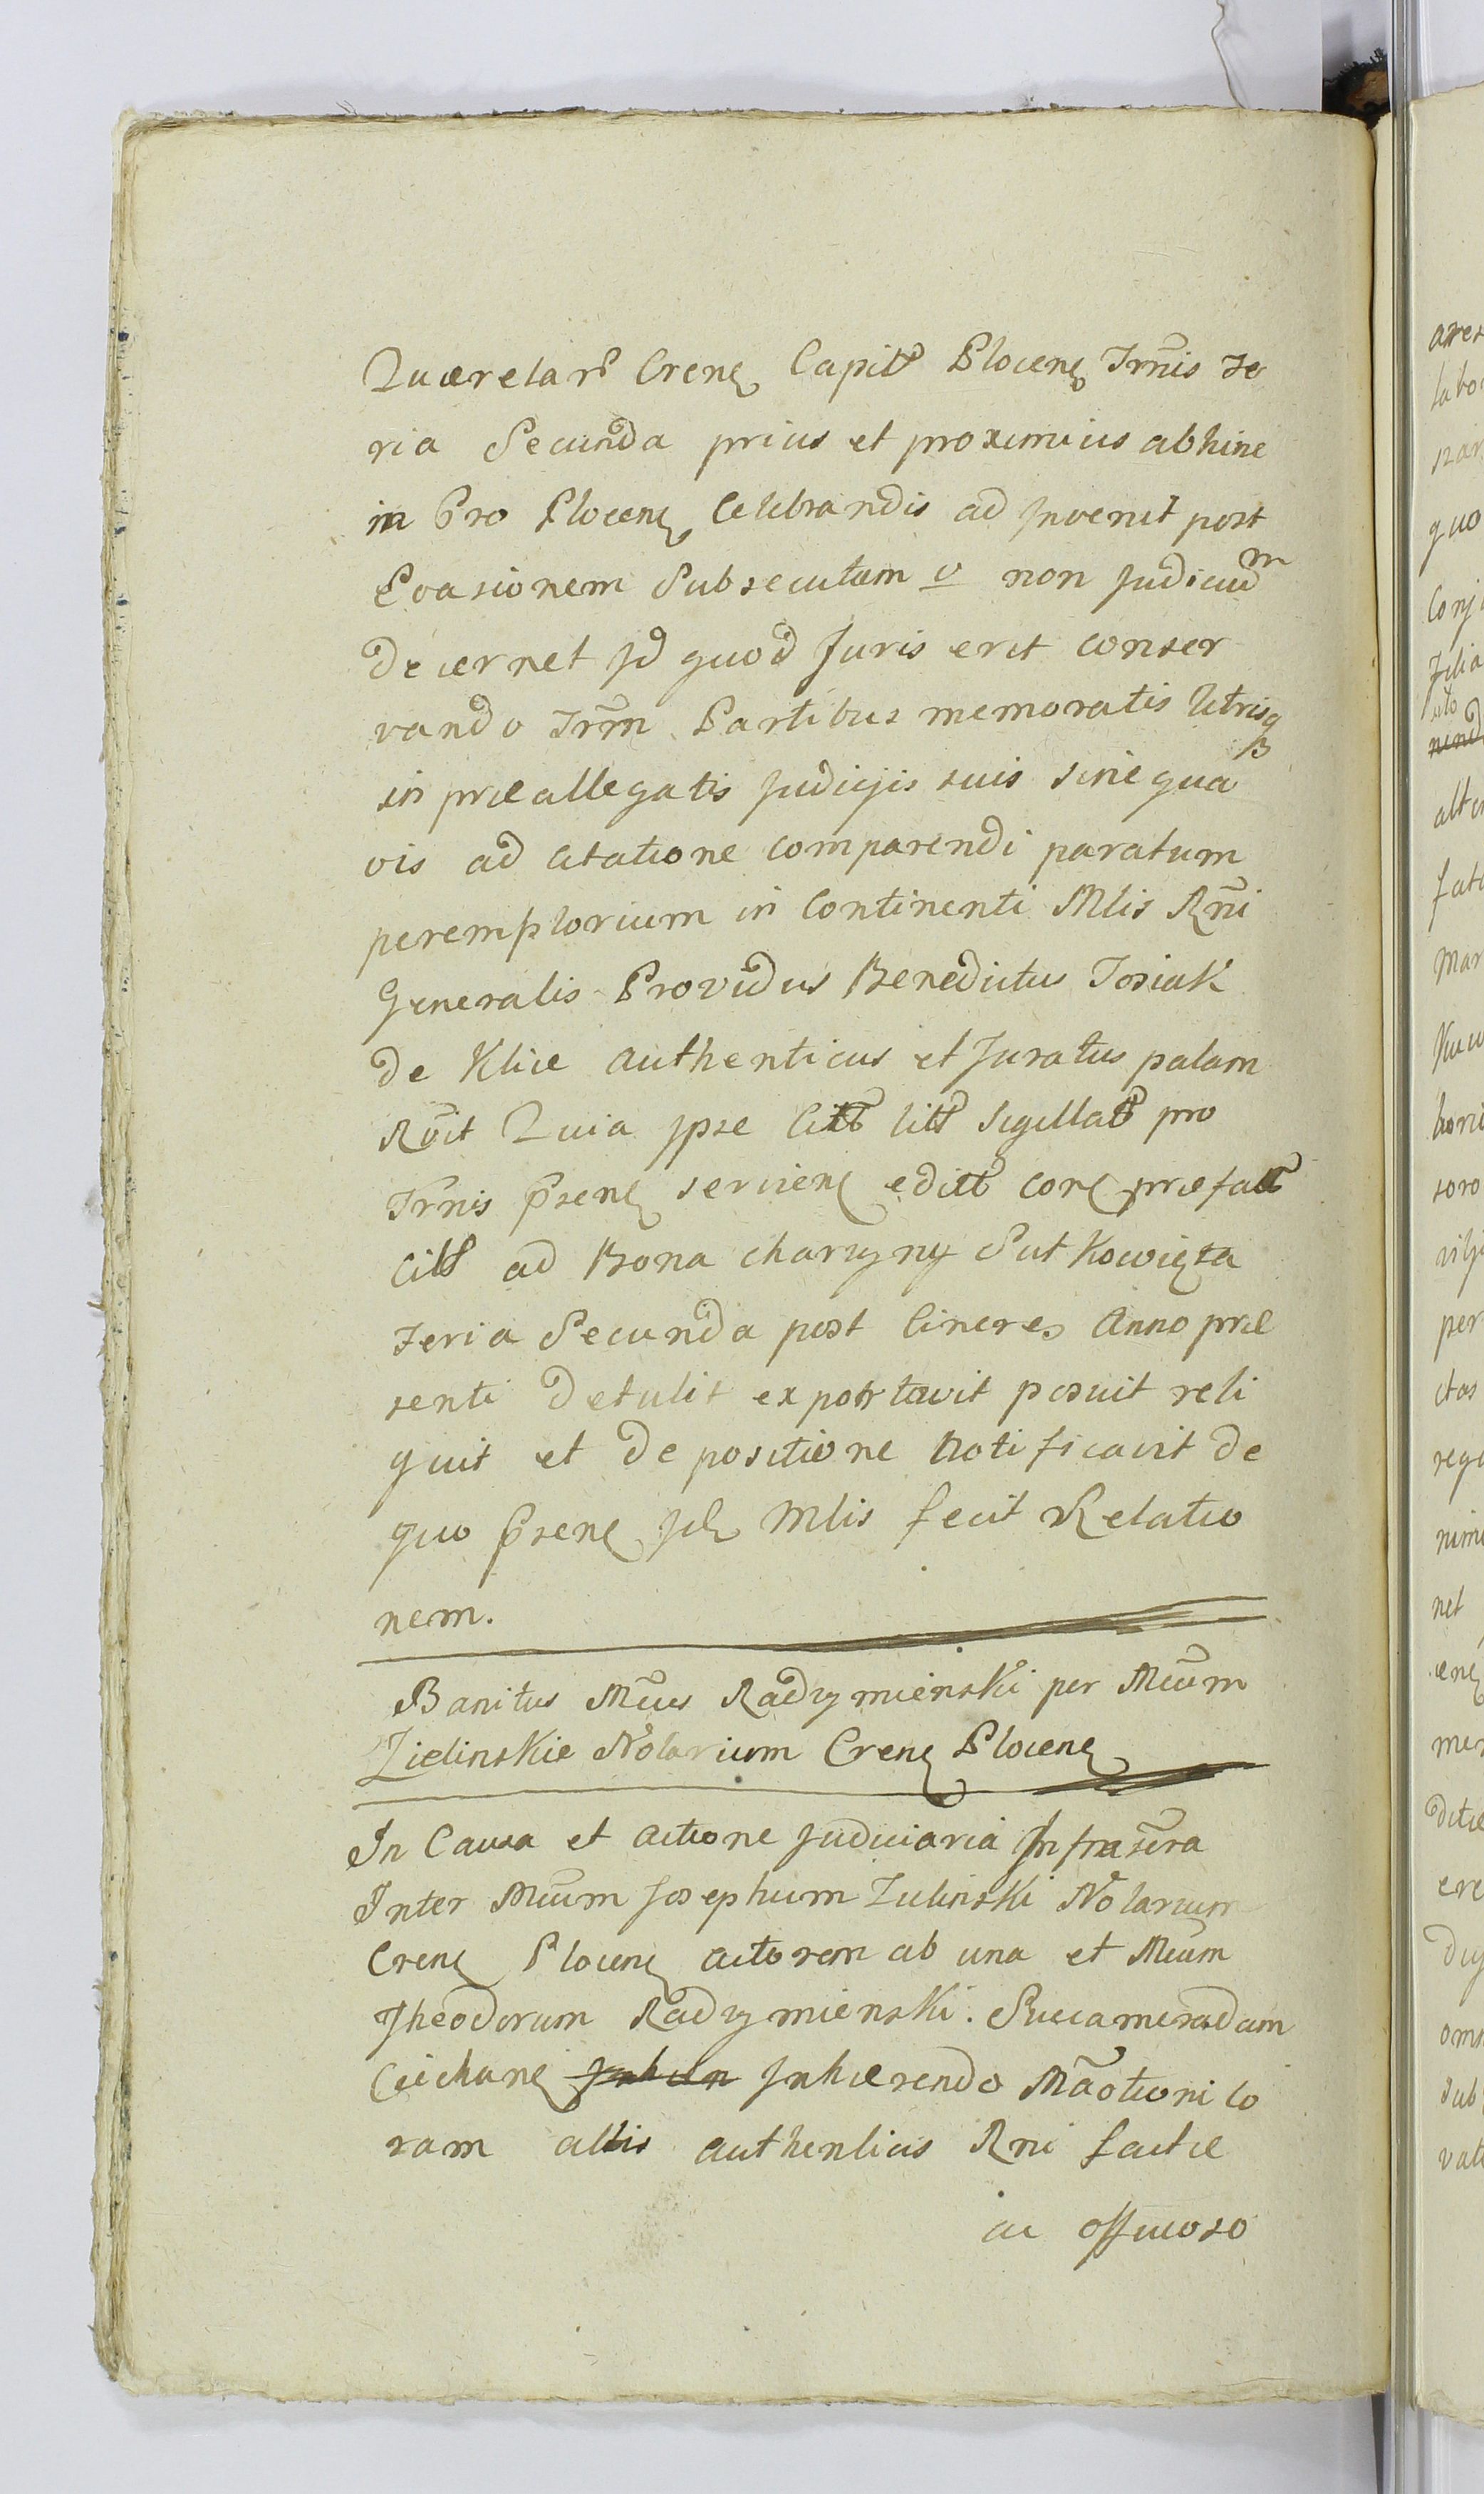 Quaerelarũ Crenę Capitũ Plocenę Trñis Fe
ria Secunda prius et proximius abhinc
in Pro Plocenę Celebrandis ad Invenit post
Evasionem Subsecutam v non Judicium
decernet Id quod Juris erit conser
vando Trm̃ Partibus memoratis Utrisq
in praeallegatis Judicijs suis sine qua
vis ad citatione comparendi paratum
peremptorium in Continenti Mlis Rñi
Generalis Providus Benedictus Tosiak
de Klice authenticus et Juratus palam
Rvit Quia Ipse litt̃ sigillat̃ pro
Trñis p̃senę servienę edit̃ Corę praefat̃
Citt̃ ad Bona charzyny Sutkowięta
Feria Secunda post Cineres Anno prae
senti detulit exportavit posuit reli
quit et de positione notificavit de
quo p̃senę Mlis fecit Relatio
nem.
Banitus Mcus Radzymienski per Mcum
Zielinskie Notarium Crenę Plocenę
In Causa et actione Judiciaria Infrascra
Inter Mcum Josephum Zielinski Notarium
Crenę Plocenę actorem ab una et Mcum
Theodorum Radzymienski. Succameradam
Ciechanę Inhaerendo Mãotioni co
ram actis authenticis Rni factae
ac officioso
ares
labo
quo
Conj
filia
alte
fat
Mar
soro
per
ctas
nim
net
mer
ere
oms
sub
vat